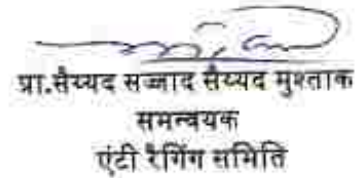 प्रा.सैय्यद सज्जाद सैय्यद मुश्ताक
समन्वयक
एंटी रैगिंग समिति